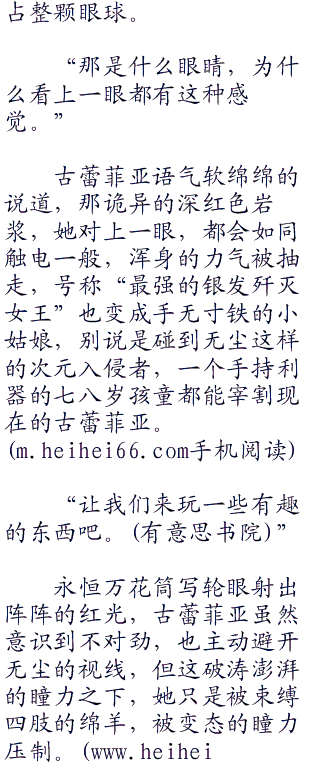 占整颗眼球。
“那是什么眼睛，为什
么看上一眼都有这种感
觉。”
古蕾菲亚语气软绵绵的
说道，那诡异的深红色岩
浆，她对上一眼，都会如同
触电一般，浑身的力气被抽
走，号称“最强的银发歼灭
女王”也变成手无寸铁的小
姑娘，别说是碰到无尘这样
的次元入侵者，一个手持利
器的七八岁孩童都能宰割现
在的古蕾菲亚。
(m.heihei66.com手机阅读)
“让我们来玩一些有趣
的东西吧。(有意思书院)”
永恒万花筒写轮眼射出
阵阵的红光，古蕾菲亚虽然
意识到不对劲，也主动避开
无尘的视线，但这破涛澎湃
的瞳力之下，她只是被束缚
四肢的绵羊，被变态的瞳力
压制。(www.heihei